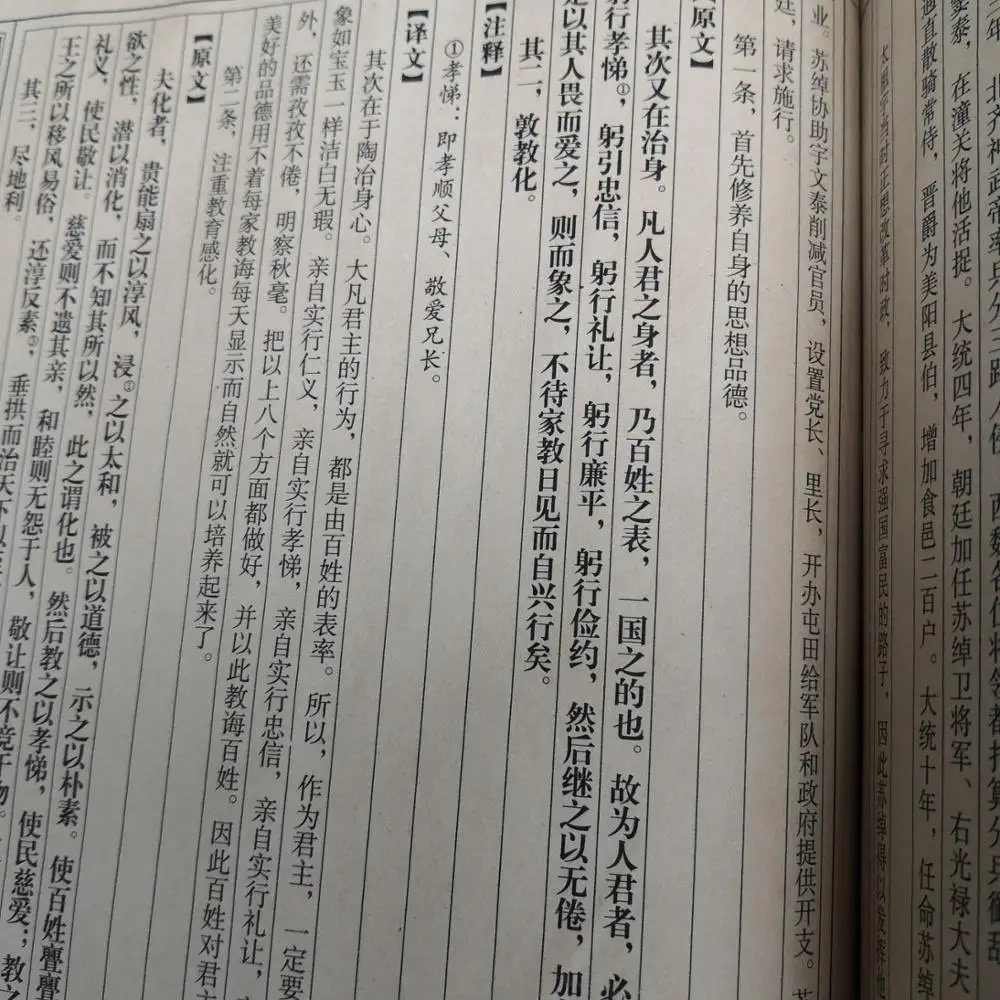 三年，北齐神武帝率兵分三路入侵，西魏各位将领都打算分兵御敌
窦泰，在潼关将他活捉。大统四年，朝廷加任苏绰卫将军、右光禄大夫
通直散骑常侍，晋爵为美阳县伯，增加食邑二百户。大统十年，任命苏绰
时正想改革时政，致力于寻求强国富民的路子，因此苏绰得以发挥他
业。苏绰协助宇文泰削减官员，设置党长、里长，开办屯田给军队和政府提供开支。苏
廷，请求施行。
第一条，首先修养自身的思想品德。
【原文】
其次又在治身。凡人君之身者，乃百姓之表，一国之的也。故为人君者，必
躬行孝悌①，躬引忠信，躬行礼让，躬行廉平，躬行俭约，然后继之以无倦，加
是以其人畏而爱之，则而象之，不待家教日见而自兴行矣。
其二，敦教化。
【注释】
①孝悌：即孝顺父母、敬爱兄长。
【译文】
其次在于陶冶身心。大凡君主的行为，都是由百姓的表率。所以，作为君主，一定要
象如宝玉一样洁白无瑕。亲自实行仁义，亲自实行孝悌，亲自实行忠信，亲自实行礼让，
外，还需孜孜不倦，明察秋毫。把以上八个方面都做好，并以此教诲百姓。因此百姓对君主
美好的品德用不着每家教诲每天显示而自然就可以培养起来了。
第二条，注重教育感化。
【原文】
夫化者，贵能扇之以淳风，浸①之以太和，被之以道德，示之以朴素。使百姓亹亹
欲之性，潜以消化，而不知其所以然，此之谓化也。然后教之以孝悌，使民慈爱；教之
礼义，使民敬让。慈爱则不遗其亲，和睦则无怨于人，敬让则不竞于物。
王之所以移风易俗，还淳反素③，垂拱而治天下以至
其三，尽地利。